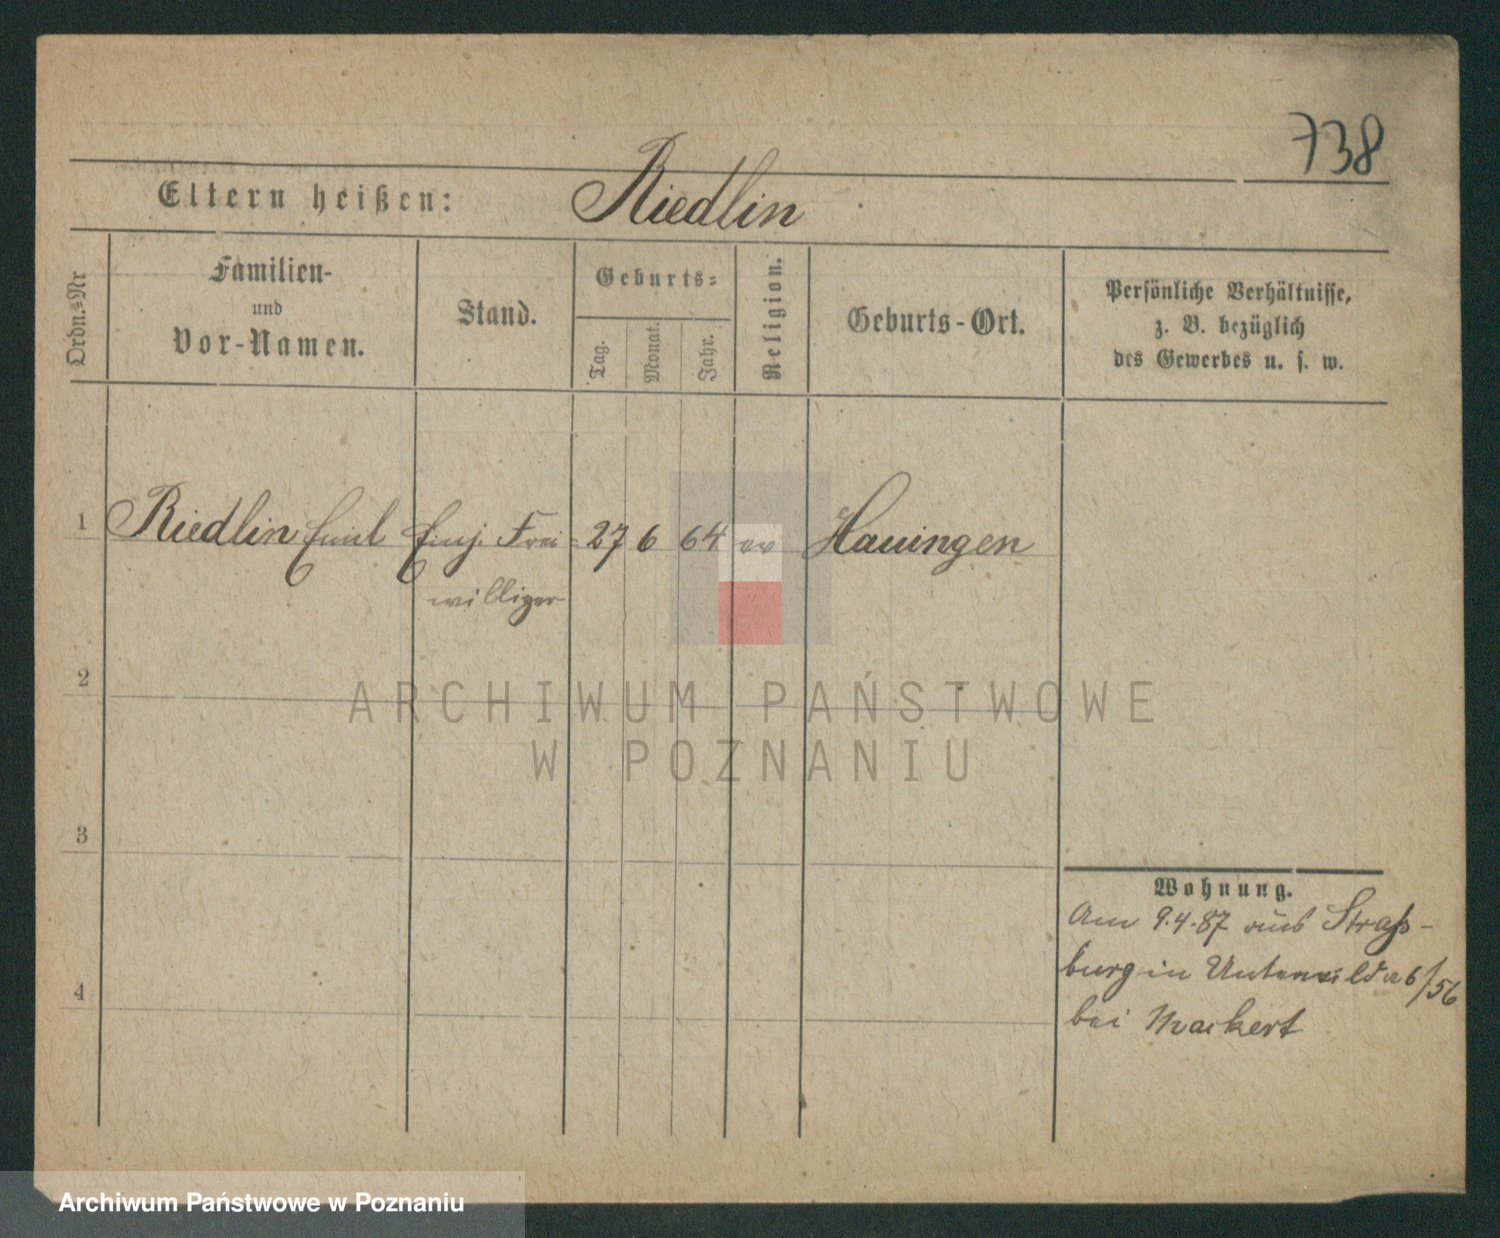 738
Eltern heißen: Riedlin
Ordn.=Nr
Familien-
und
Vor-Namen.
Stand.
Geburts=
Tag.
Monat.
Jahr.
Religion.
Geburts-Ort.
Persönliche Verhältnisse,
z. B. bezüglich
des Gewerbes u. s. w.
1 Riedlin Emil Einj. Frei- 27 6 64 ev Hauingen
williger
2
ARCHIWUM PAŃSTWOWE
W POZNANIU
3
4
Wohnung.
Am 9.4.87 aus Straß-
burg in 6/56
bei Mackert
Archiwum Państwowe w Poznaniu